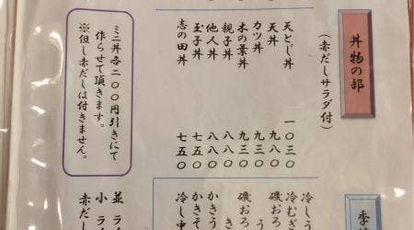 丼物の部
(赤だしサラダ付)
天とじ丼 一〇三〇
天丼 九八〇
カツ丼 九三〇
木の葉丼 九三〇
親子丼 八八〇
他人丼 八八〇
玉子丼 七五〇
志の田丼 七五〇
ミニ丼各二〇〇円引きにて
作らせて頂きます。
※但し赤だしは付きません。
季
冷しう
冷むぎ
磯おろ
う
磯おろ
き
かきう
かきそ
冷し中
並 ライ
小 ライ
赤だし